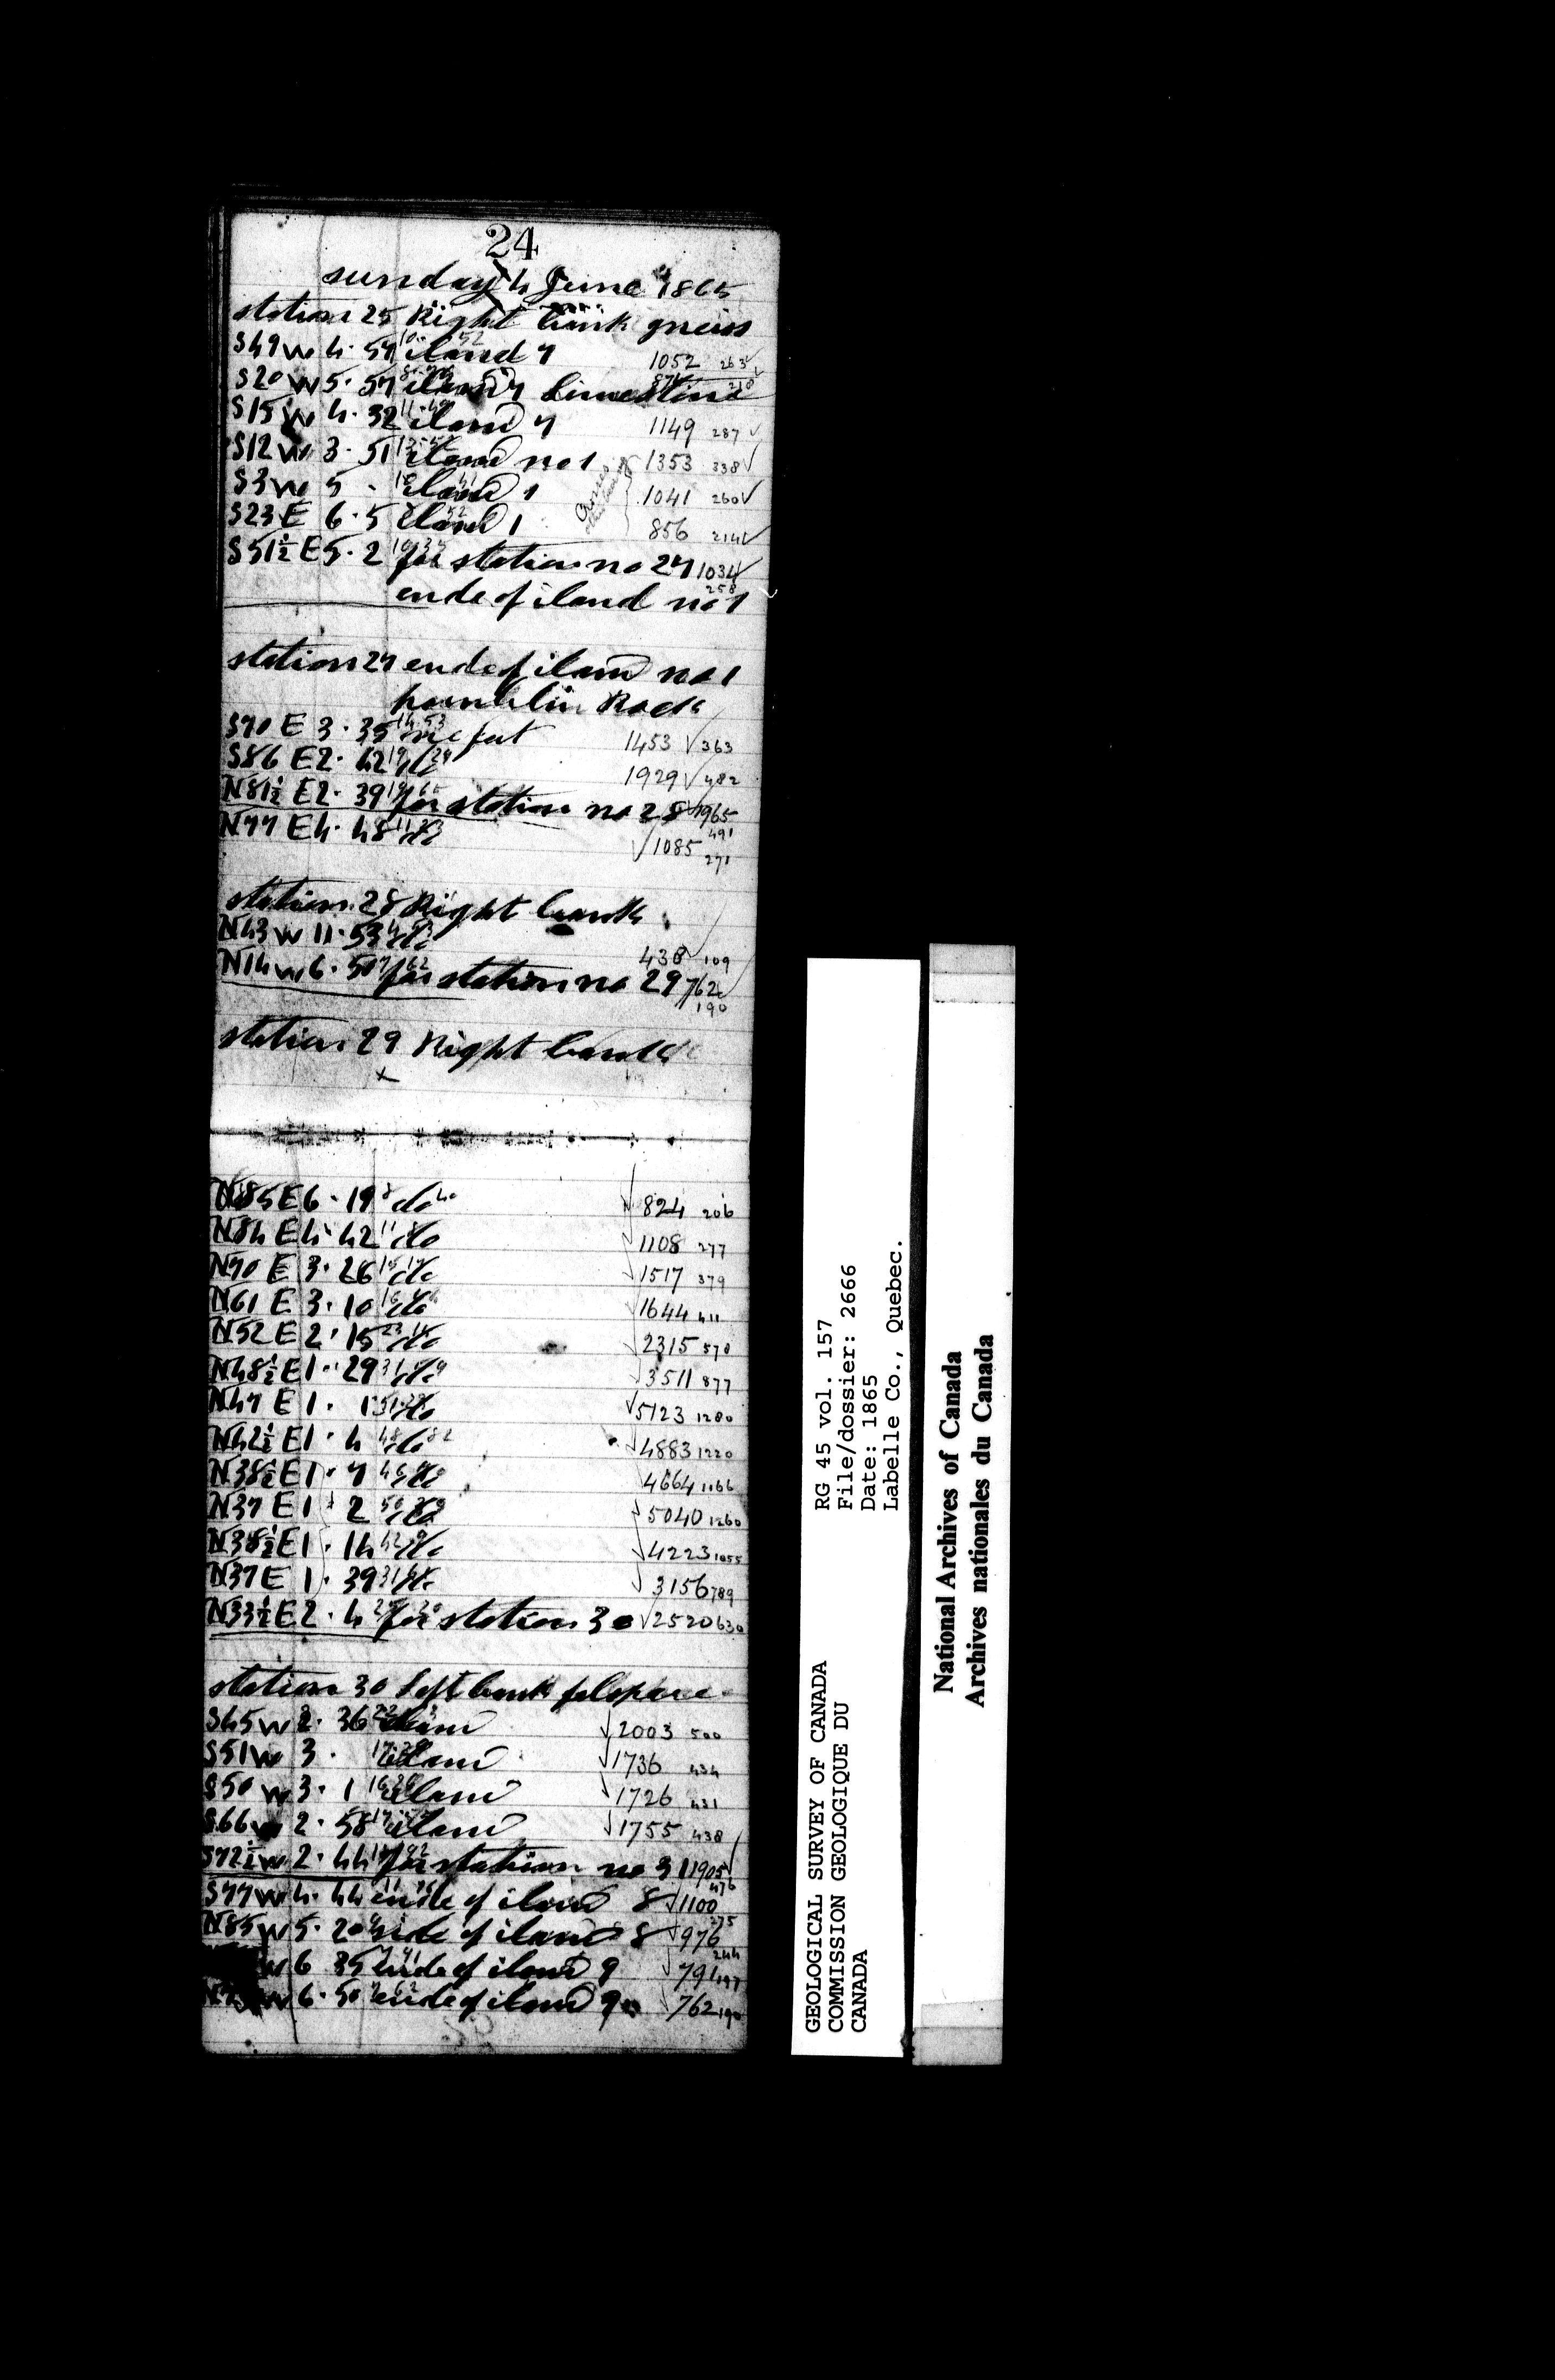 24
sunday 4 June 1865
station 25 Right bank gneiss
S49 W 4 · 57 iland 7 1052 263
S20 W 5 · 57 iland 7 limestone 874 218
S15 W 4 · 32 iland 7 1149 287
S12 W 3 · 51 iland no 1 1353 338
S3 W 5 · iland 1 1041 260
S23 E 6 · 5 iland 1 856 214
S51½ E 5 · 2 for station no 27 1034
258
ende of iland no 1
station 27 ende of iland no 1
Rock
S70 E 3 · 35 1453 363
S86 E 2 · 42 do 1929 482
N81½ E 2 · 39 for station no 28 1965
491
N77 E 4 · 48 do 1085 271
station 28 Right bank
N43 W 11 · 53 do 438 109
N14 W 6 · 50 for station no 29 762
190
station 29 Right bank
x
N85 E 6 · 19 do 824 206
N84 E 4 · 42 do 1108 277
N70 E 3 · 26 do 1517 379
N61 E 3 · 10 do 1644 411
N52 E 2 · 15 do 2315 578
N48½ E 1 · 29 do 3511 877
N47 E 1 · 1 do 5123 1280
N42½ E 1 · 4 do 4883 1220
N38½ E 1 · 7 do 4664 1166
N37 E 1 · 2 do 5040 1260
N38½ E 1 · 14 do 4223 1055
N37 E 1 · 39 do 3156 789
N33½ E 2 · 4 for station 30 2520 630
station 30 Left bank felspare
S45 W 2 · 36 iland 2003 500
S51 W 3 · iland 1736 434
S50 W 3 · 1 iland 1726 431
S66 W 2 · 58 iland 1755 438
S72½ W 2 · 44 for station no 31 1905
476
S77 W 4 · 44 ende of iland 8 1100
275
N85 W 5 · 20 side of iland 8 976
244
W 6 35 ende of iland 9 791 197
W 6 · 50 ende of iland 9 762 190
GEOLOGICAL SURVEY OF CANADA
COMMISSION GEOLOGIQUE DU
CANADA
RG 45 vol. 157
File/dossier: 2666
Date: 1865
Labelle Co., Quebec.
National Archives of Canada
Archives nationales du Canada